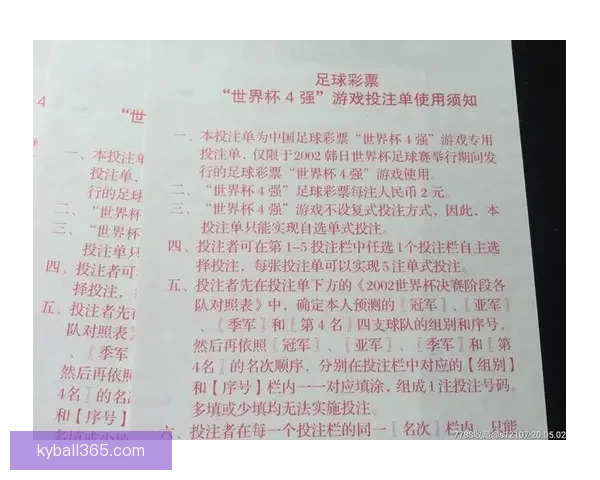 足球彩票
“世界杯 4 强”游戏投注单使用须知
一、本投注单为中国足球彩票“世界杯 4 强”游戏专用
投注单，仅限于2002 韩日世界杯足球赛举行期间发
行的足球彩票“世界杯 4 强”游戏使用。
二、“世界杯 4 强”足球彩票每注人民币 2 元。
三、“世界杯 4 强”游戏不设复式投注方式，因此，本
投注单只能实现自选单式投注。
四、投注者可在第 1–5 投注栏中任选 1个投注栏自主选
择投注，每张投注单可以实现 5 注单式投注。
五、投注者先在投注单下方的《2002世界杯决赛阶段各
队对照表》中，确定本人预测的〖冠军〗、〖亚军〗
、〖季军〗和〖第 4 名〗四支球队的组别和序号，
然后再依照〖冠军〗、〖亚军〗、〖季军〗和〖第
4名〗的名次顺序，分别在投注栏中对应的【组别】
和【序号】栏内一一对应填涂，组成1注投注号码。
多填或少填均无法实施投注。
六、投注者在每一个投注栏的同一〖名次〗栏内，只能
4
“世
一、本投注单
投注单，
行的足球
二、“世界杯
三、“世界杯
投注单只
四、投注者可
择投注，
五、投注者先在
队对照表》
、〖季军〗
然后再依照
4名〗的名
和【序号】
多填或少填
7788收藏@s12107-20.05.02
kyball365.com